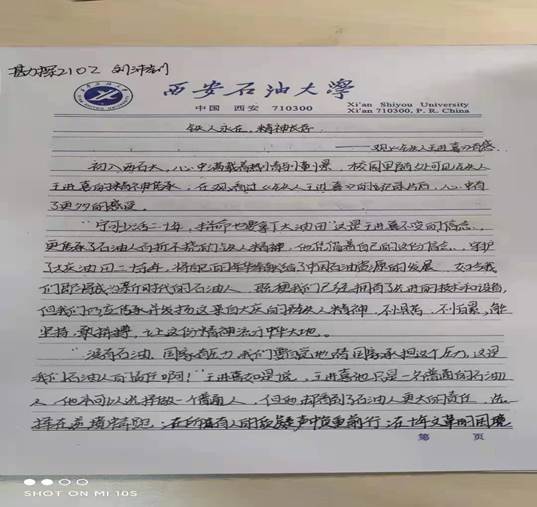 勘探2102 刘
西安石油大学
中国 西安 710300
Xi'an Shiyou University
Xi'an 710300, P. R. China
铁人永在,精神长存
——观《铁人王进喜》有感
初入西石大,心中满载着热情与憧憬。校园里随处可见铁人
王进喜的精神传承,在观看过《铁人王进喜》的纪录片后,心中有
了更多的感受。
"宁可少活二十年,拼命也要拿下大油田"这是王进喜不变的信念,
更传承了石油人百折不挠的铁人精神,他凭借着自己的这份信念,守护
了大庆油田二十年,将自己的年华奉献给了中国石油资源的发展。如今我
们即将成为新时代的石油人。虽然我们已经拥有了先进的技术和设备,
但我们仍应传承并发扬这来自大庆的铁人精神,不畏苦,不畏累,能
坚持,敢拼搏,让这份精神洒满中华大地。
"没有石油,国家有压力,我们要自觉地替国家承担这个压力,这是
我们石油人的责任啊!"王进喜如是说,王进喜他只是一名普通的石油
人,他本可以选择做一个普通人,但他却看到了石油人更大的责任,选
择在 ;在所有人的质疑声中负重前行;在十年文革的困境
第 页
SHOT ON MI 10S